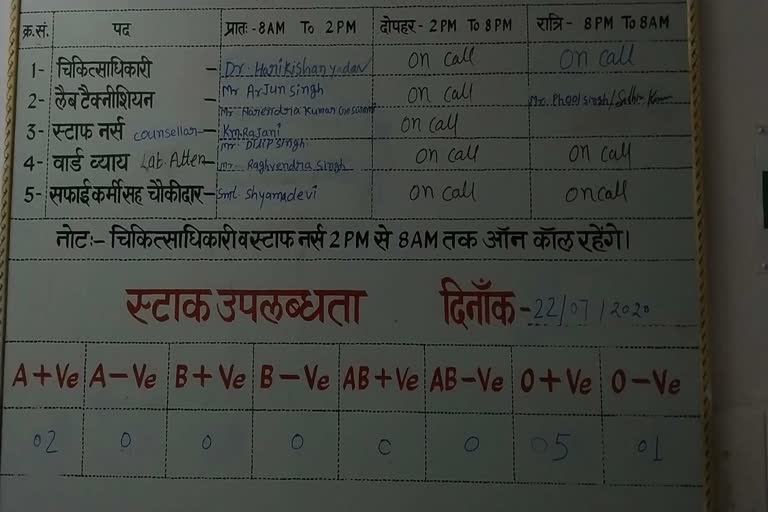 क्र.सं. पद प्रातः-8AM To 2PM दोपहर- 2PM To 8PM रात्रि- 8PM To 8AM
1- चिकित्साधिकारी - Dr. Harikishan yadav on call on call
2- लैब टैक्नीशियन - Mr Arjun Singh on call Mr. Phool Singh/
Mr Narendra Kumar
3- स्टाफ नर्स counsellar - Km. Rajani on call
Mr. Dilip Singh
4- वार्ड व्याय Lab. Atten - Mr. Raghvendra Singh on call on call
5- सफाईकर्मी सह चौकीदार - Smt. Shyamadevi on call on call
नोटः- चिकित्साधिकारी व स्टाफ नर्स 2 PM से 8AM तक ऑन कॉल रहेंगे।
स्टाक उपलब्धता दिनाँक-22/07/2020
A+Ve A-Ve B+Ve B-Ve AB+Ve AB-Ve O+Ve O-Ve
02 0 0 0 0 0 05 01